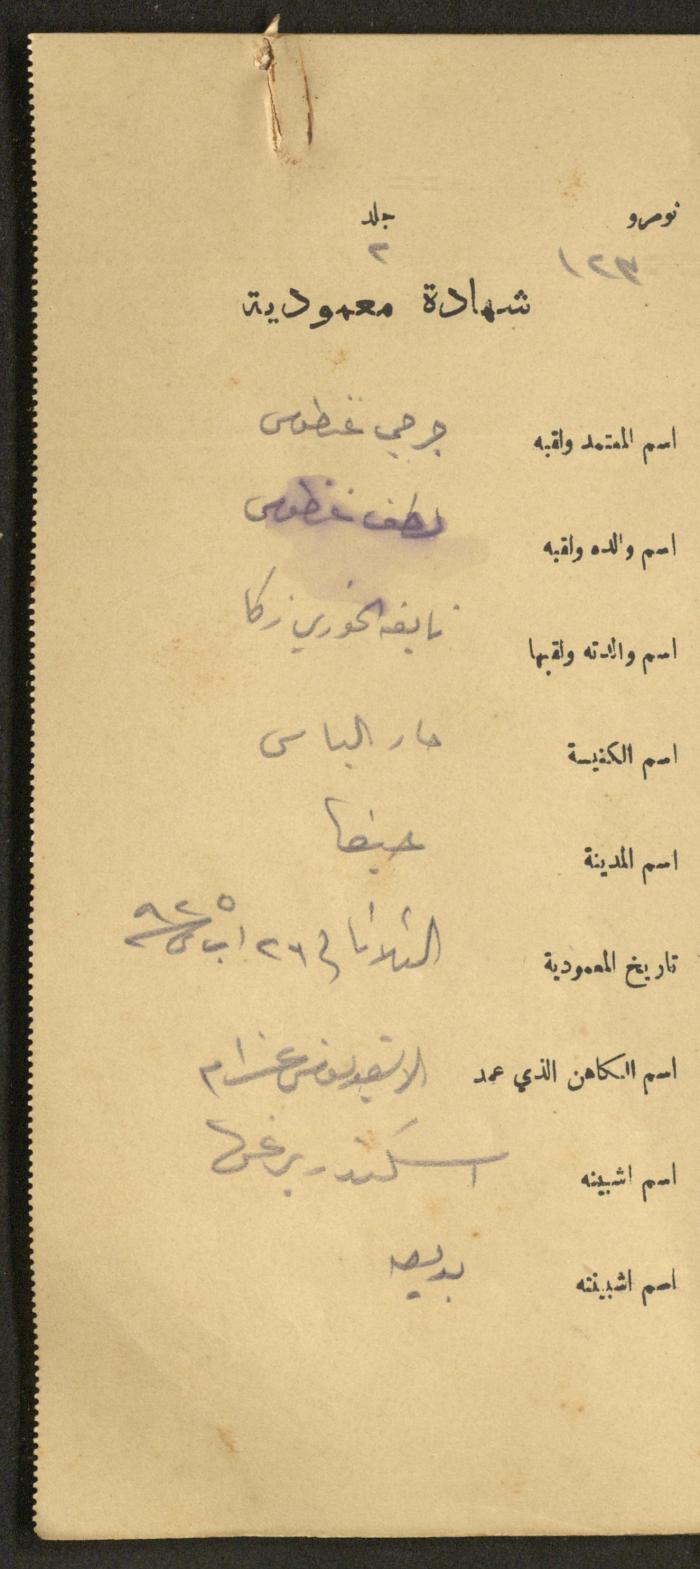 نومرو جلد
١٢٣ ٢
شهادة معمودية
اسم المعتمد ولقبه جرجي غطوس
اسم والده ولقبه لطف غطوس
اسم والدته ولقبها نايفه الخوري زكا
اسم الكنيسة مار الياس
اسم المدينة حيفا
تاريخ المعمودية الثلاثا في ٢٦ اب
اسم الكاهن الذي عمد
اسم اشبينه اسكندر
اسم اشبينته بديعه